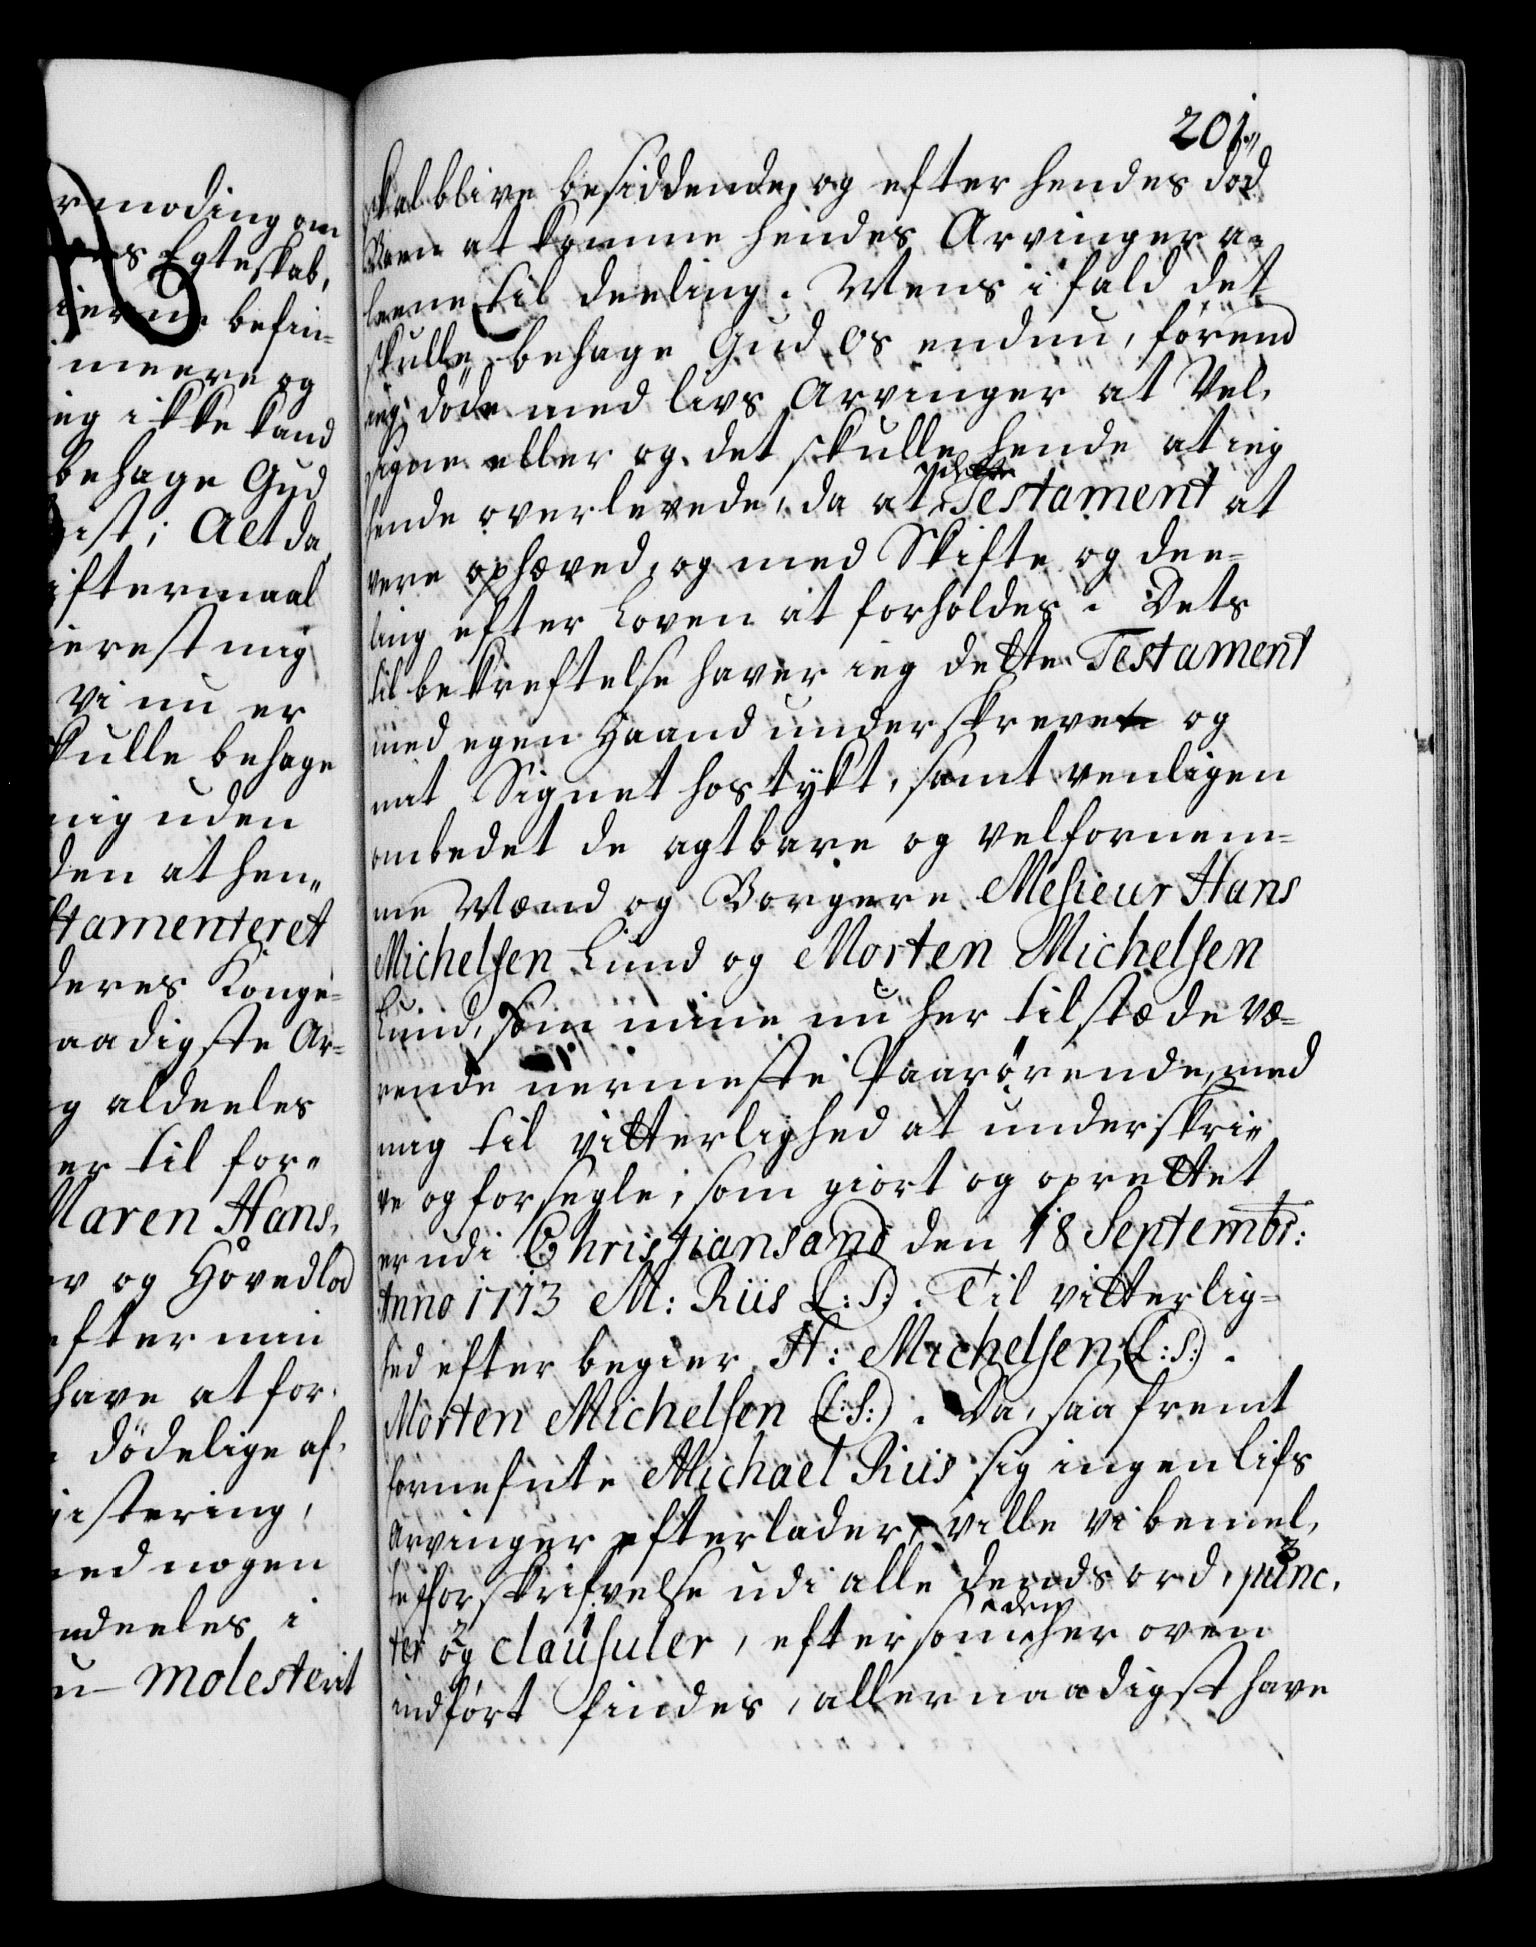 rmoding om
s Egteskab,
ierne befin-
meere og
ieg ikke kand
behage Gud
ist; Alt da
iftermaal
ierest mig
vi nu er
kulle behage
mig uden
den at hen„
stamenteret
deres Konge-
aadigste Ar-
g aldeeles
er til for„
Maren Hans,
v og Hovedlod
efter min
have at for,
dödelige af,
istering,
med nogen
ndeeles i
u molesterit
201„
skal blive besiddende, og efter hendes död
at komme hendes Arvinger a„
leene til deeling. Mens i fald det
skulle behage Gud os endnu, förend
ieg döde med livs Arvinger at Vel,
signe eller og det skulle hende at ieg
hende overlevede, da at dette Testament at
vere ophæved, og med Skifte og dee-
ling efter Loven at forholdes. Dets
til bekreftelse haver ieg dette Testament
med egen Haand underskrevet og
mit Signet hostykt, samt venligen
ombedet de agtbare og velfornem-
me Mænd og Borgere Mesieur Hans
Michelsen Lund og Morten Michelsen
Lund, som mine nu her tilstæde væ-
rende nermeste Paarörende, med
mig til vitterlighed at underskri„
ve og forsegle, som giort og oprettet
er udi Christiansand den 18 Septembr:
Anno 1713 M: Riis (L:S:). Til vitterlig-
hed efter begier H: Michelsen (L:S:).
Morten Michelsen (L:S:). Da, saa fremt
fornefnte Michael Riis sig ingen lifs
Arvinger efterlader, ville vi bemel,
te forskrifvelse udi alle dends ord, punc,
ter og clausuler, eftersom den her oven
indfört findes, allernaadigst have